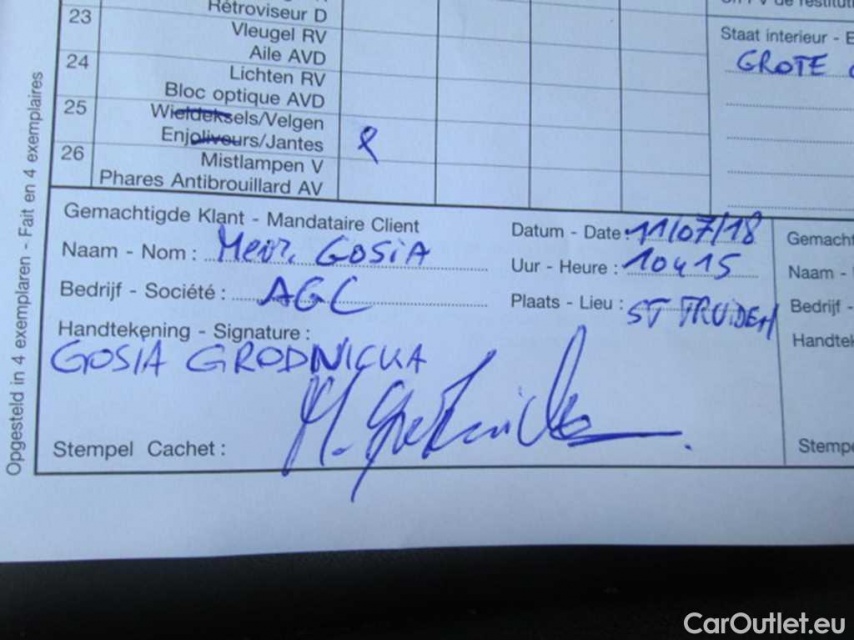 23
Rétroviseur D
Vleugel RV
Aile AVD
24
Lichten RV
Bloc optique AVD
25
Wieldeksels/Velgen
Enjoliveurs/Jantes
26
Mistlampen V
Phares Antibrouillard AV
Staat interieur - E
GROTE
Opgesteld in 4 exemplaren - Fait en 4 exemplaires
Gemachtigde Klant - Mandataire Client
Naam - Nom : Mevr. GOSiA
Bedrijf - Société : AGC
Handtekening - Signature :
GOSIA GRODNICKA
Stempel Cachet :
Datum - Date : 11/07/18
Uur - Heure : 10u15
Plaats - Lieu : ST TRUiDEN
Gemacht
Naam -
Bedrijf -
Handtek
Stempe
CarOutlet.eu